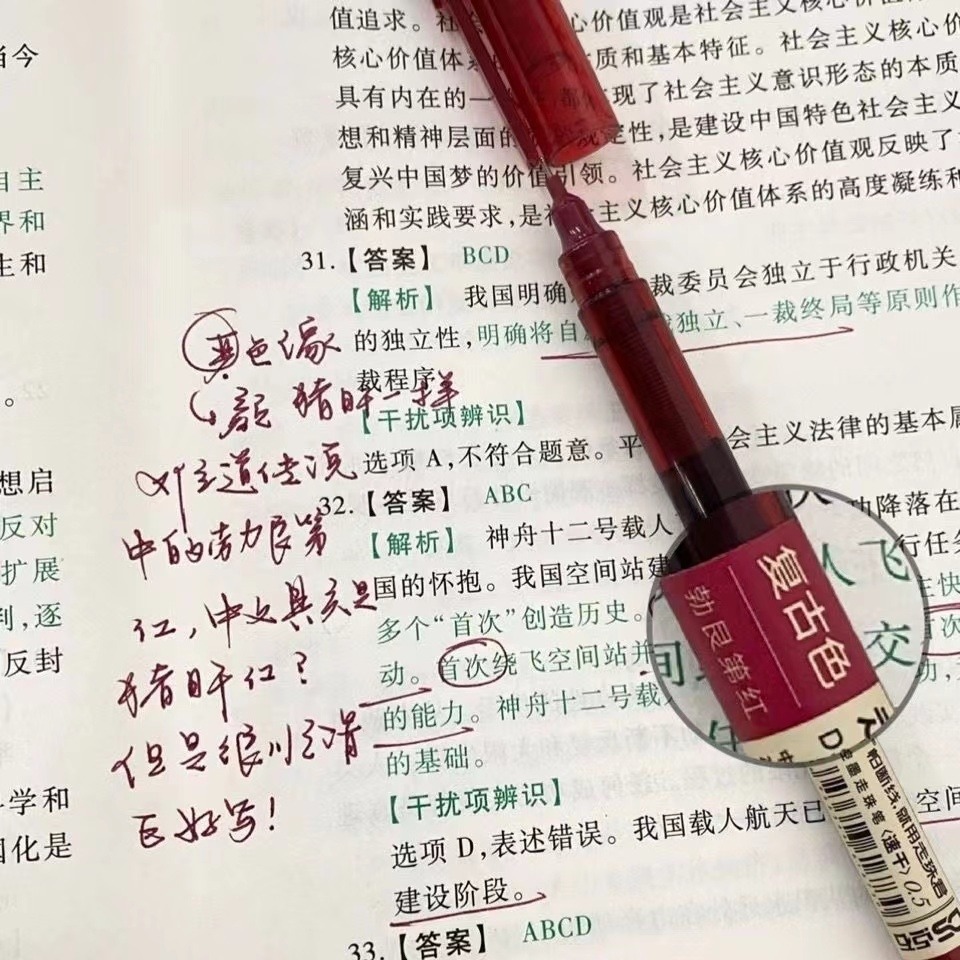 当今
自主
界和
生和
。
想启
反对
扩展
判,逐
反封
科学和
国化是
值追求。社
心价值观是社会主义核心价
核心价值体系
质和基本特征。社会主义核心价
具有内在的一
现了社会主义意识形态的本质
想和精神层面的
规定性,是建设中国特色社会主义
复兴中国梦的价值引领。社会主义核心价值观反映了
涵和实践要求,是社会主义核心价值体系的高度凝练和
31.【答案】 BCD
【解析】 我国明确
裁委员会独立于行政机关
的独立性,明确将自
裁独立、一裁终局等原则作
裁程序
【干扰项辨识】
选项 A,不符合题意。平
会主义法律的基本属
32.【答案】 ABC
【解析】 神舟十二号载人
功降落在
国的怀抱。我国空间站建
行任务
多个“首次”创造历史。
主快
动。首次绕飞空间站并
首次
的能力。神舟十二号载
功,
的基础。
【干扰项辨识】
选项 D,表述错误。我国载人航天已
空间
建设阶段。
33.【答案】 ABCD
其色像
颜 猪肝一样
对这道传说
中的勃艮第
红,中文其实是
猪肝红?
但是很顺滑
巨好写!
人飞
间
交
任
复古色
勃艮第红
怕断线 就用走珠君
全墨走珠笔(速干)0.5